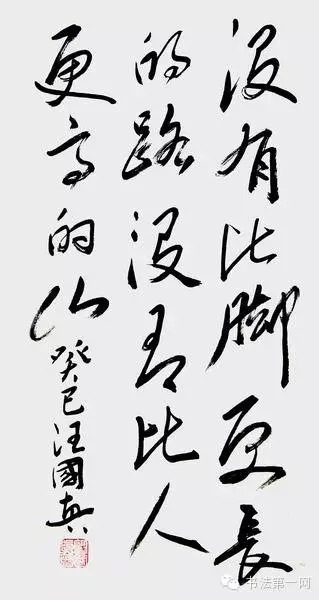 没有比脚更长
的路没有比人
更高的山
癸巳汪國真
书法第一网